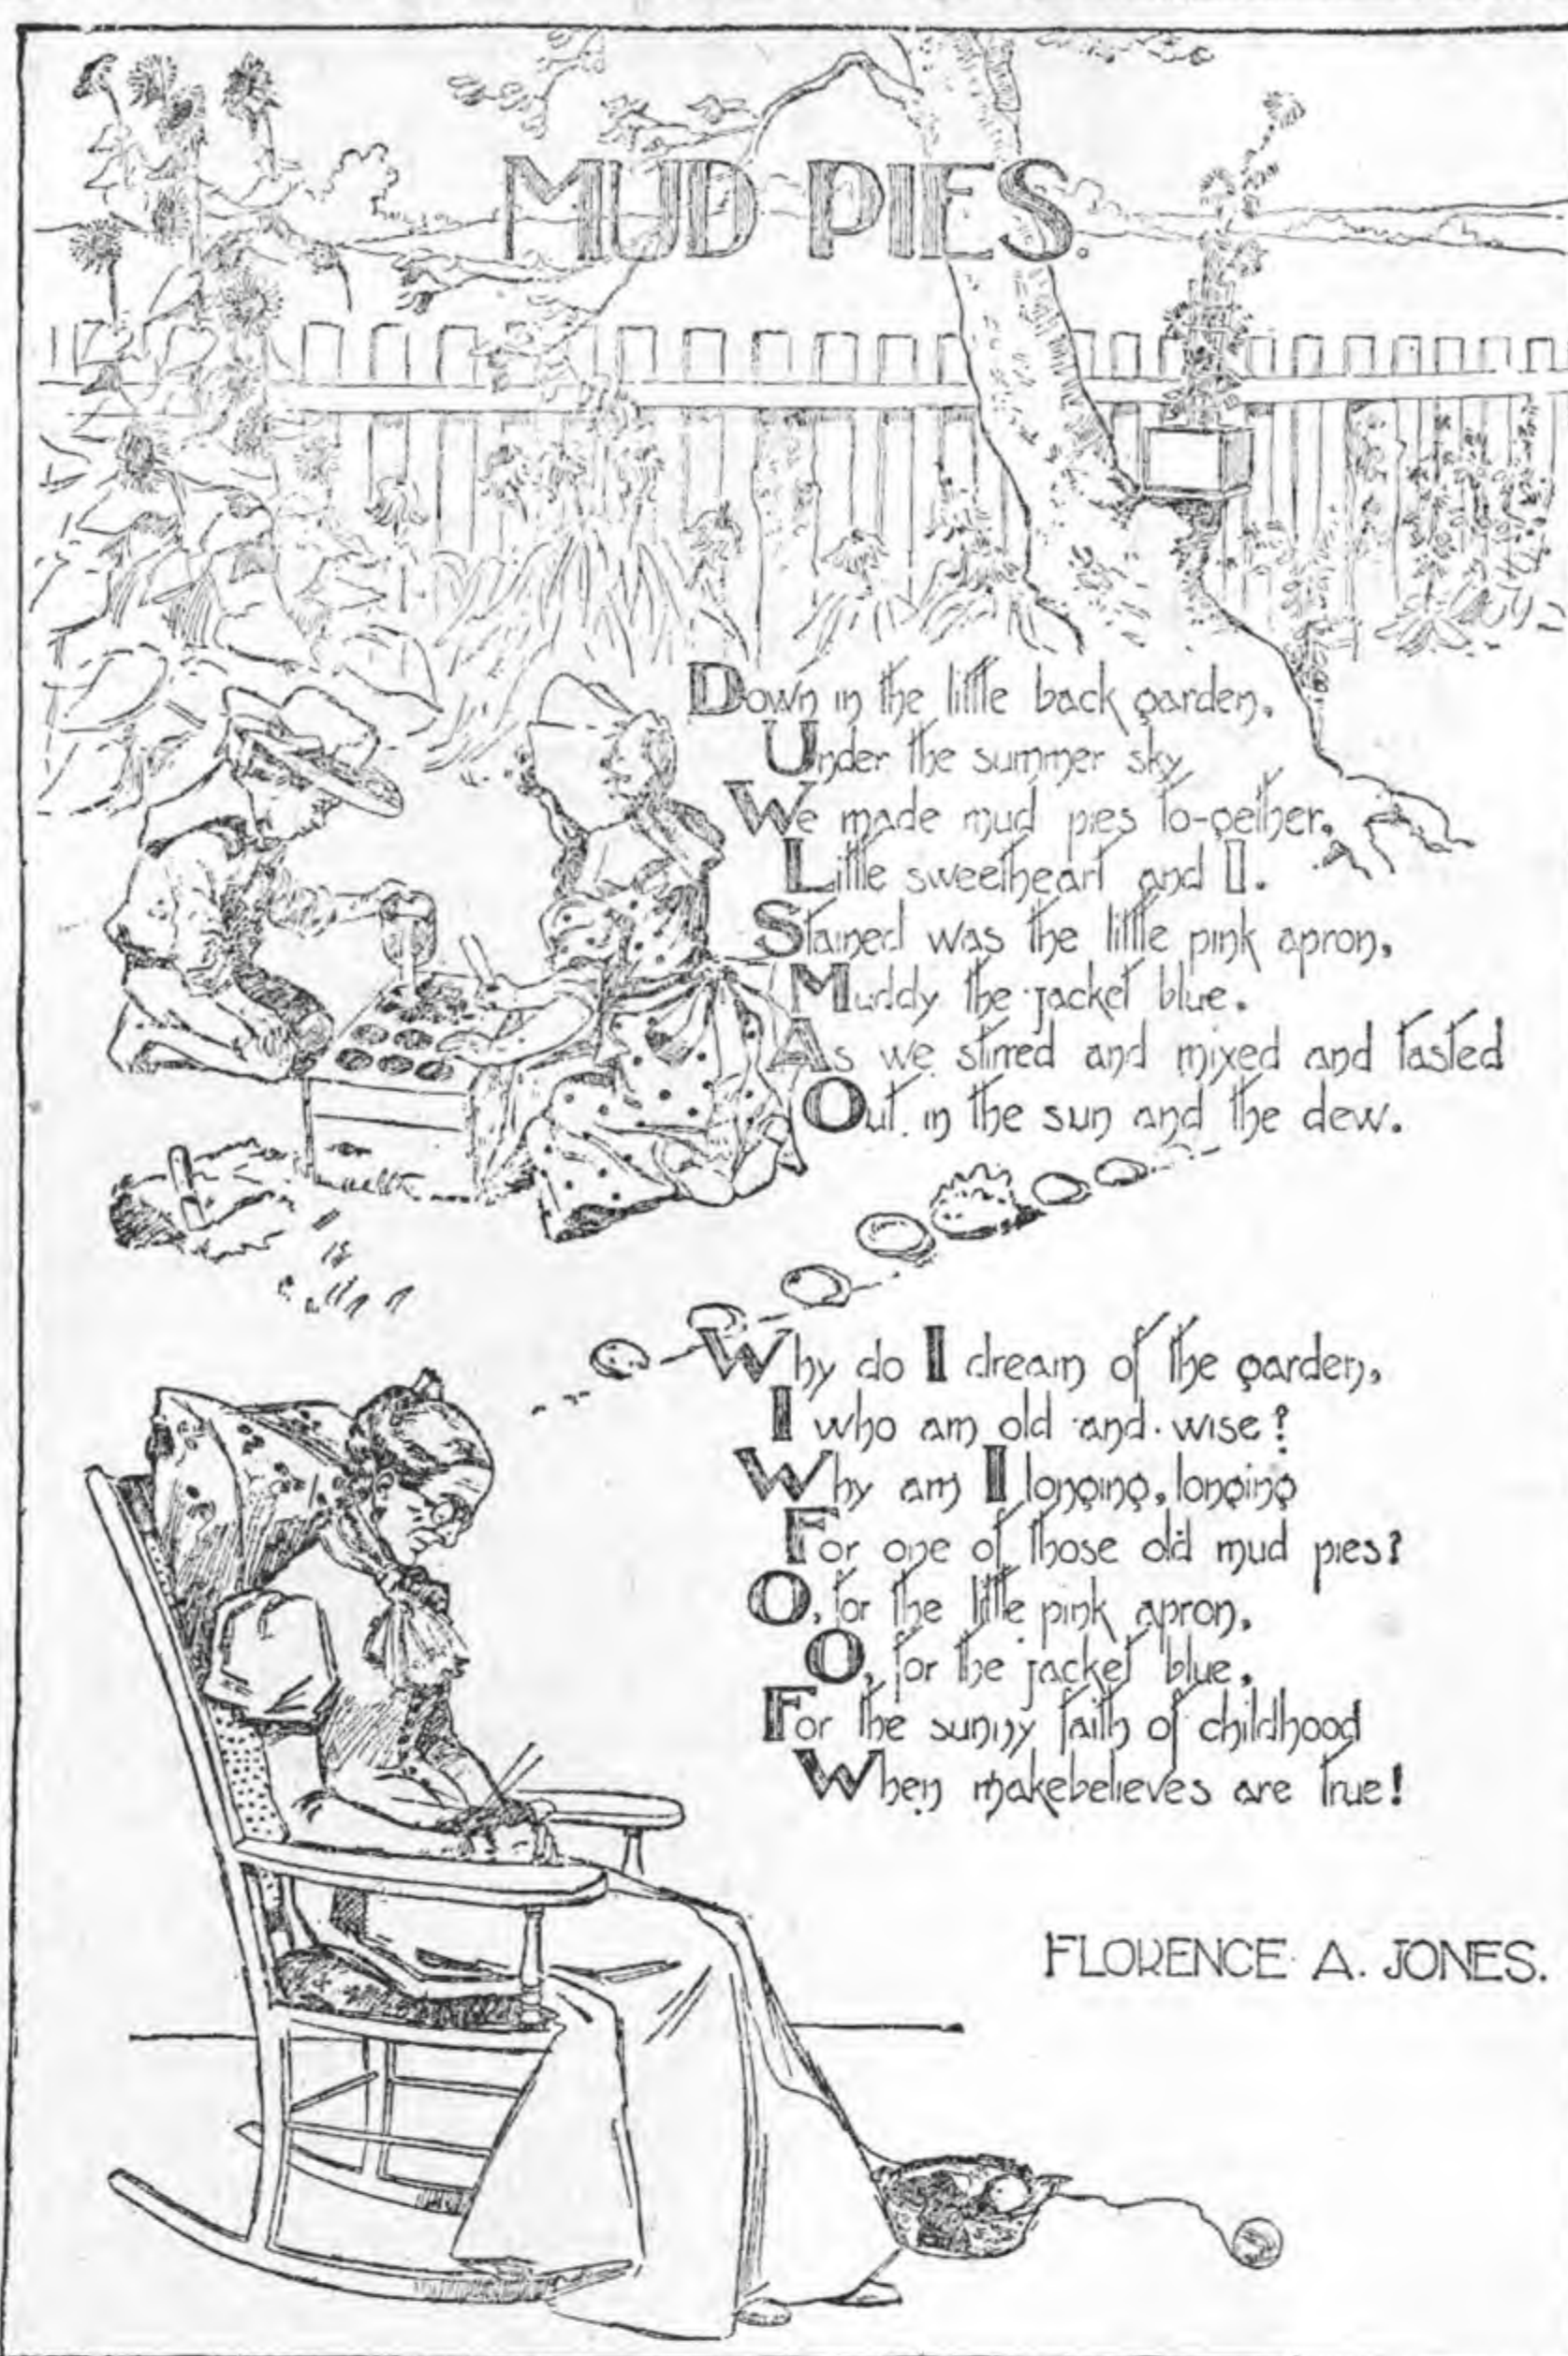 MUD PIES.
Down in the little back garden,
Under the summer sky
We made mud pies to-gether,
Little sweetheart and I.
Stained was the little pink apron,
Muddy the jacket blue.
As we stirred and mixed and tasted
Out in the sun and the dew.
Why do I dream of the garden,
I who am old and wise?
Why am I longing, longing
For one of those old mud pies?
O, for the little pink apron,
O, for the jacket blue,
For the sunny faith of childhood
When makebelieves are true!
FLORENCE A. JONES.